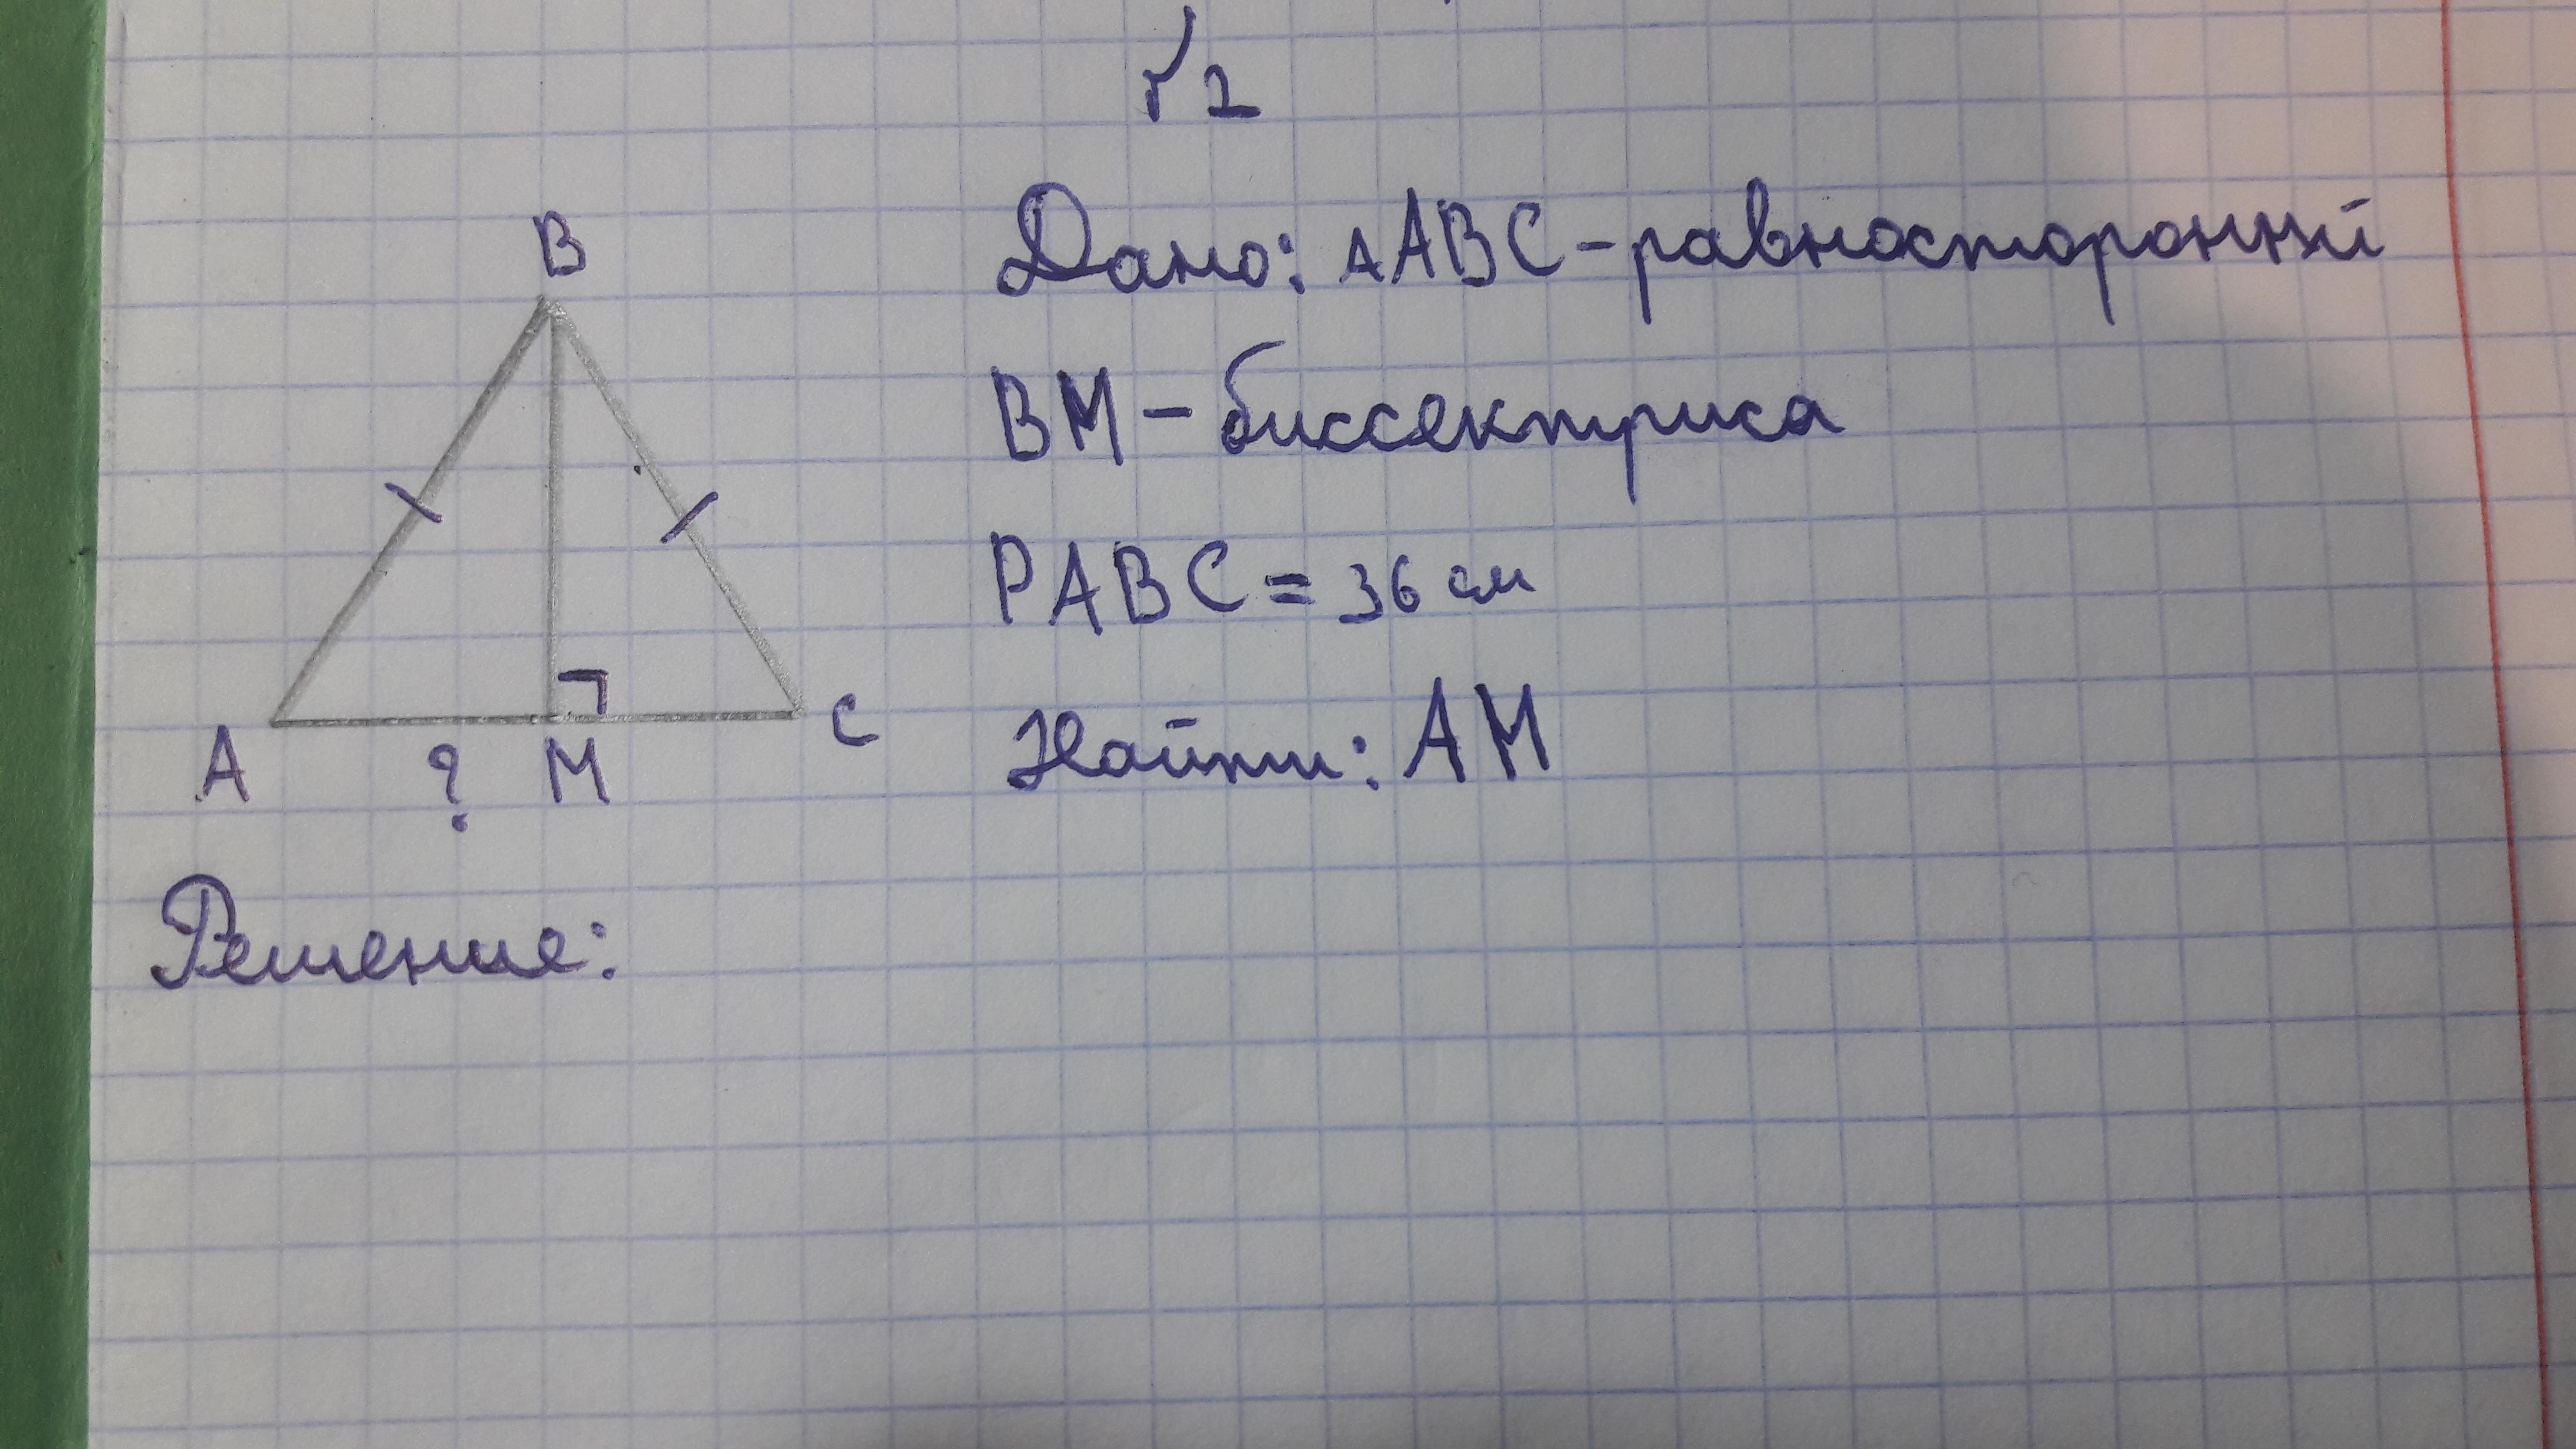 √2
B
Дано: △ABC - равносторонний
BM - биссектриса
PABC = 36 см
A ? M C
Найти: AM
Решение: